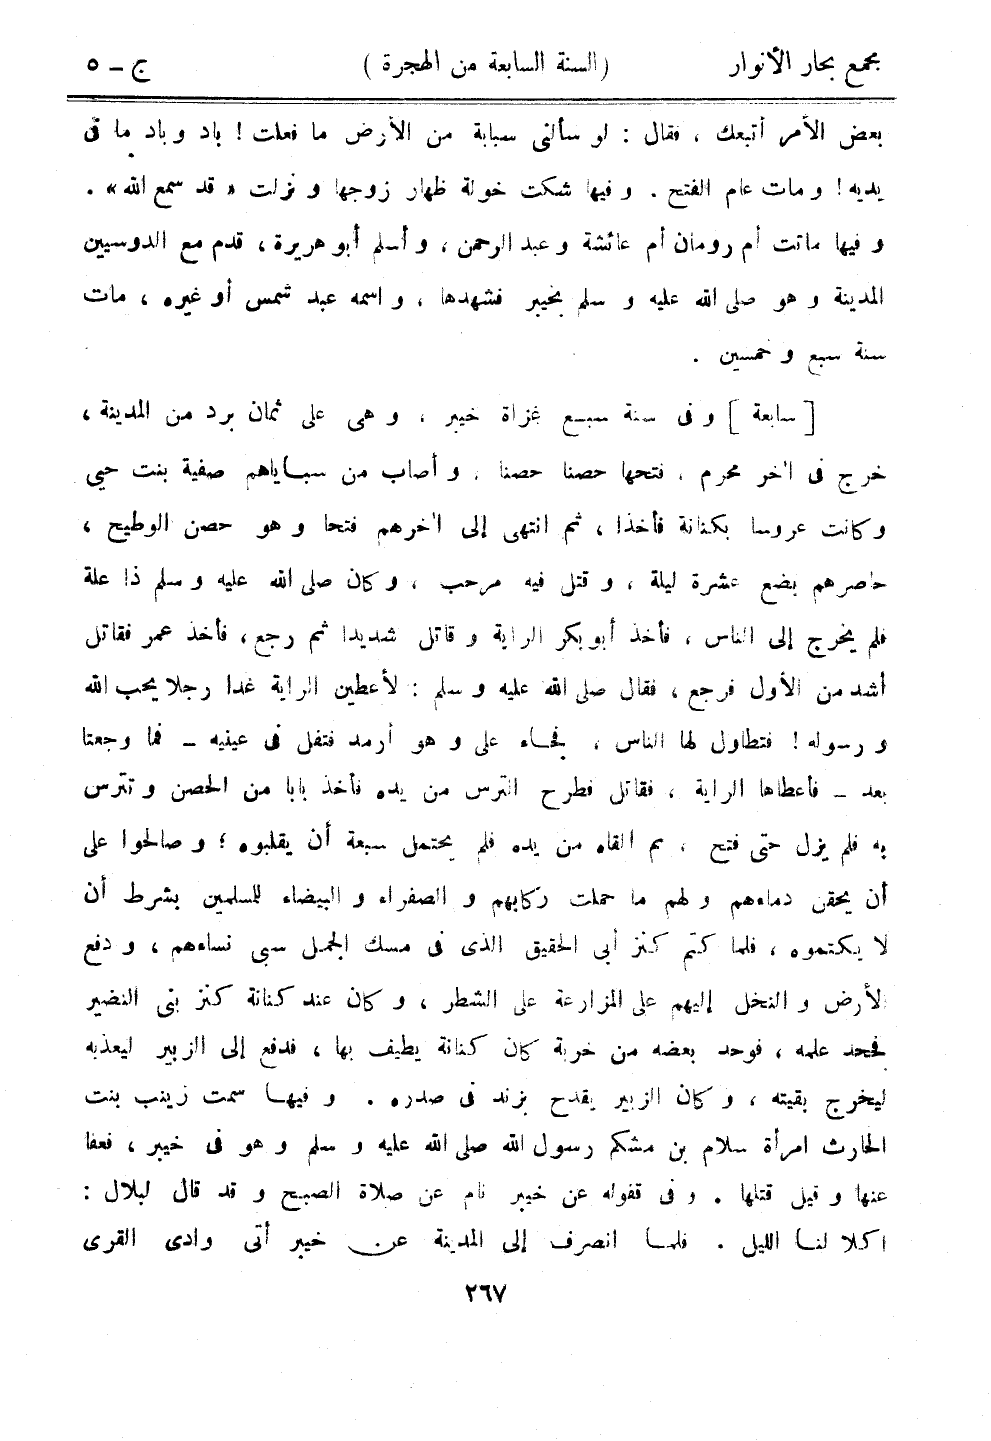 مجمع بحار الأنوار (السنة السابعة من الهجرة) ج ـ ٥
بعض الأمر أتبعك ، فقال : لو سألنى سبابة من الأرض ما فعلت ! باد و باد ما فى
يديه ! و مات عام الفتح . و فيها شكت خولة ظهار زوجها و نزلت « قد سمع الله » .
و فيها ماتت أم رومان أم عائشة و عبد الرحمن ، و أسلم أبو هريرة ، قدم مع الدوسيين
المدينة و هو صلى الله عليه و سلم بخيبر فشهدها ، و اسمه عبد شمس أو غيره ، مات
سنة سبع و خمسين .
[ سابعة ] و فى سنة سبع غزاة خيبر ، و هى على ثمان برد من المدينة ،
خرج فى اٰخر محرم ، فتحها حصنا حصنا ، و أصاب من سباياهم صفية بنت حيى
وكانت عروسا بكنانة فأخذا ، ثم انتهى إلى اٰخرهم فتحا و هو حصن الوطيح ،
حاصرهم بضع عشرة ليلة ، و قتل فيه مرحب ، و كان صلى الله عليه و سلم ذا علة
فلم يخرج إلى الناس ، فأخذ أبو بكر الراية و قاتل شديدا ثم رجع ، فأخذ عمر فقاتل
أشد من الأول فرجع ، فقال صلى الله عليه و سلم : لأعطين الراية غدا رجلا يحب الله
و رسوله ! فتطاول لها الناس ، فجاء على و هو أرمد فتفل فى عينيه ـ فما وجعتا
بعد ـ فأعطاها الراية ، فقاتل فطرح الترس من يده فأخذ بابا من الحصن و تترس
به فلم يزل حتى فتح ، ثم القاه من يده فلم يحتمل سبعة أن يقلبوه ؛ و صالحوا على
أن يحقن دماءهم و لهم ما حملت ركابهم و الصفراء و البيضاء للمسلمين بشرط أن
لا يكتموه ، فلما كتم كنز أبى الحقيق الذى فى مسك الجمل سبى نساءهم ، و دفع
الأرض و النخل إليهم على المزارعة على الشطر ، و كان عند كنانة كنز بنى النضير
فجحد علمه ، فوجد بعضه من خربة كان كنانة يطيف بها ، فدفع إلى الزبير ليعذبه
ليخرج بقيته ، و كان الزبير يقدح بزند فى صدره . و فيها سمت زينب بنت
الحارث امرأة سلام بن مشكم رسول الله صلى الله عليه و سلم و هو فى خيبر ، فعفا
عنها و قيل قتلها . و فى قفوله عن خيبر نام عن صلاة الصبح و قد قال لبلال :
اكلا لنا الليل . فلما انصرف إلى المدينة عن خيبر أتى وادى القرى
٢٦٧